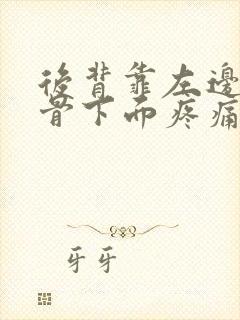 後背靠左邊
骨下而疼痛
牙牙